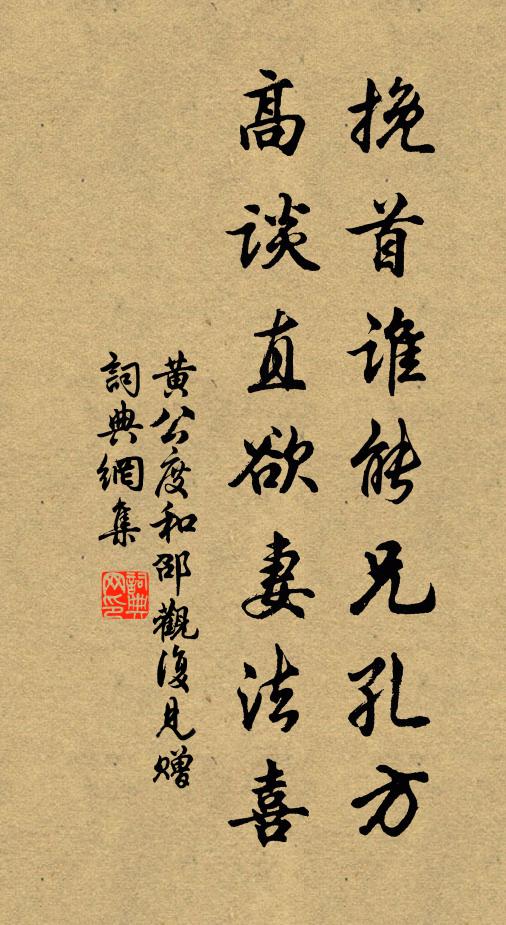 挽首谁能兄孔方
高谈直欲妻法喜
黄公度和邵觀復见赠
詞典網集
詞典网印